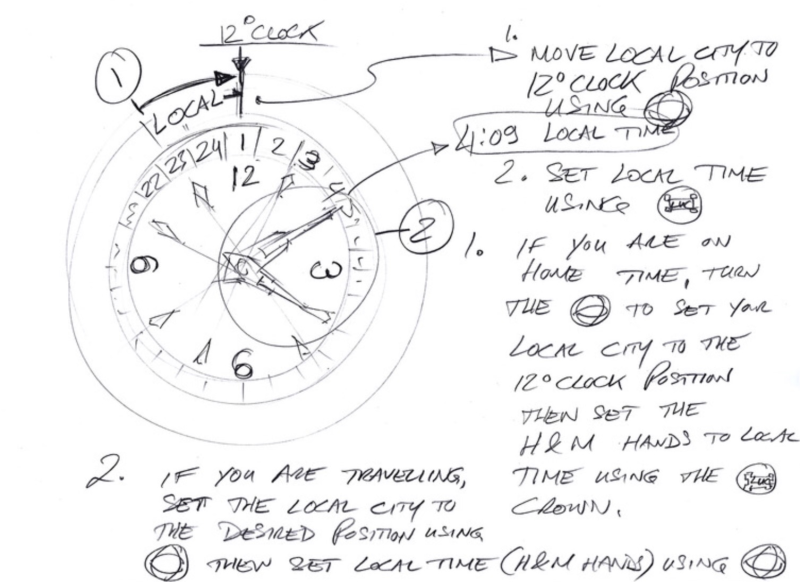 12° CLOCK
1
LOCAL
1. MOVE LOCAL CITY TO
12° CLOCK POSITION
USING
4:09 LOCAL TIME
2. SET LOCAL TIME
USING
22 23 24 1 2 3 4
12
3
6
9
2
1. IF YOU ARE ON
HOME TIME, TURN
THE TO SET YOUR
LOCAL CITY TO THE
12° CLOCK POSITION
THEN SET THE
H&M HANDS TO LOCAL
TIME USING THE
CROWN.
2. IF YOU ARE TRAVELLING,
SET THE LOCAL CITY TO
THE DESIRED POSITION USING
THEN SET LOCAL TIME (H&M HANDS) USING